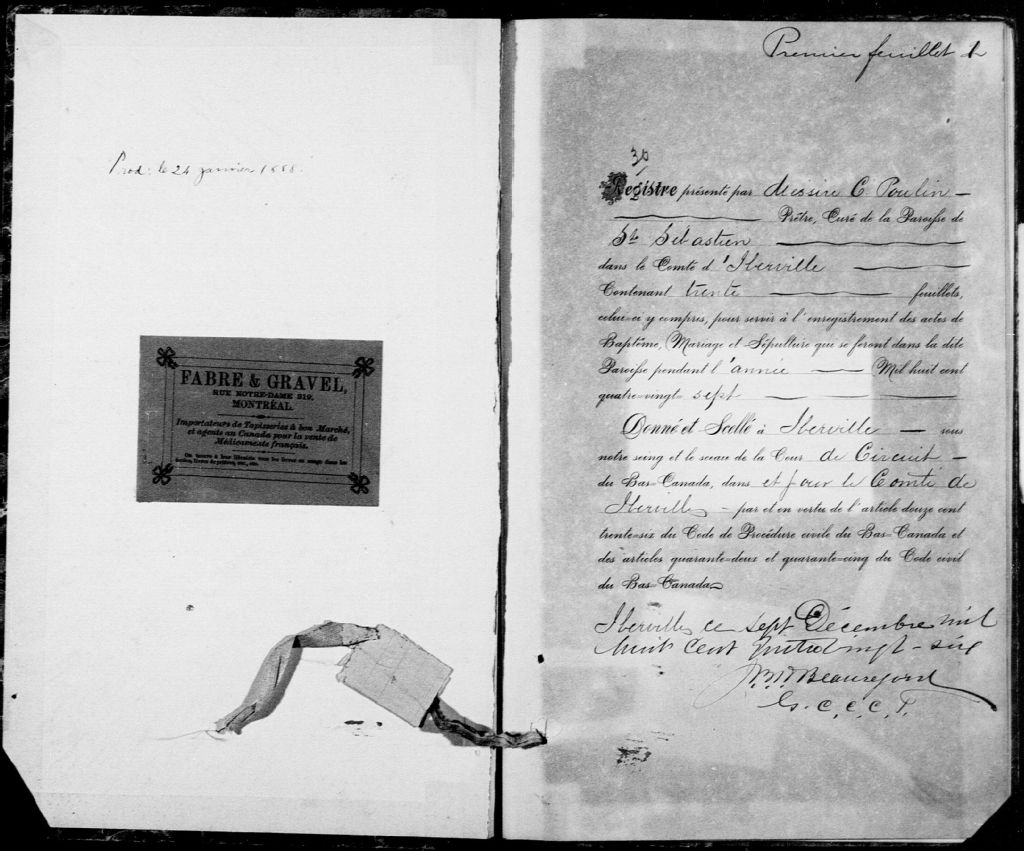 Prod: le 24 janvier 1888.
FABRE & GRAVEL,
RUE NOTRE-DAME 219,
MONTRÉAL.
Importateurs de Tapisseries à bon Marché,
et agents au Canada pour la vente de
Médicaments français.
On trouve à leur librairie tous les livres en usage dans les
écoles, livres de prières, etc., etc.
Premier feuillet 1
30
Registre présenté par Messire C Poulin —
Prêtre, Curé de la Paroisse de
St Sébastien
dans le Comté d'Iberville
Contenant trente feuillets,
celui-ci y compris, pour servir à l'enregistrement des actes de
Baptême, Mariage et Sépulture qui se feront dans la dite
Paroisse pendant l'année — Mil huit cent
quatre-vingt- sept
Donné et Scellé à Iberville — sous
notre seing et le sceau de la Cour de Circuit —
du Bas-Canada, dans et pour le Comté de
Iberville — par et en vertu de l'article douze cent
trente-six du Code de Procédure civile du Bas-Canada et
des articles quarante-deux et quarante-cinq du Code civil
du Bas-Canada
Iberville ce sept Décembre mil
huit cent quatrevingt-six
Beauregard
G. C. C. C. I.